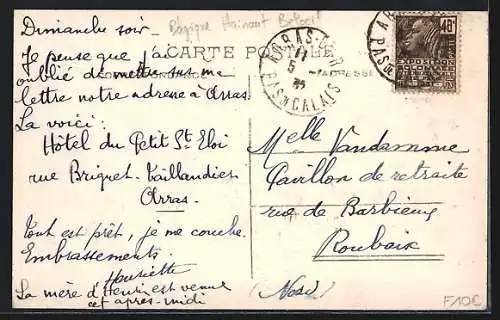 Dimanche soir
Belgique Hainaut Beloeil
CARTE POSTALE
Je pense que j'ai
oublié de mettre sur ma
lettre notre adresse à Arras.
La voici :
Hôtel du Petit St Eloi
rue Briquet-Taillandier
Arras.
Tout est prêt, je me couche.
Embrassements.
Henriette
La mère d'Henri est venue
cet après-midi
ARRAS-GARE
PAS DE CALAIS
ADRESSE
40c
EXPOSITION
COLONIALE
Melle Vandamme
Pavillon de retraite
rue de Barbieux
Roubaix
(Nord)
F10C